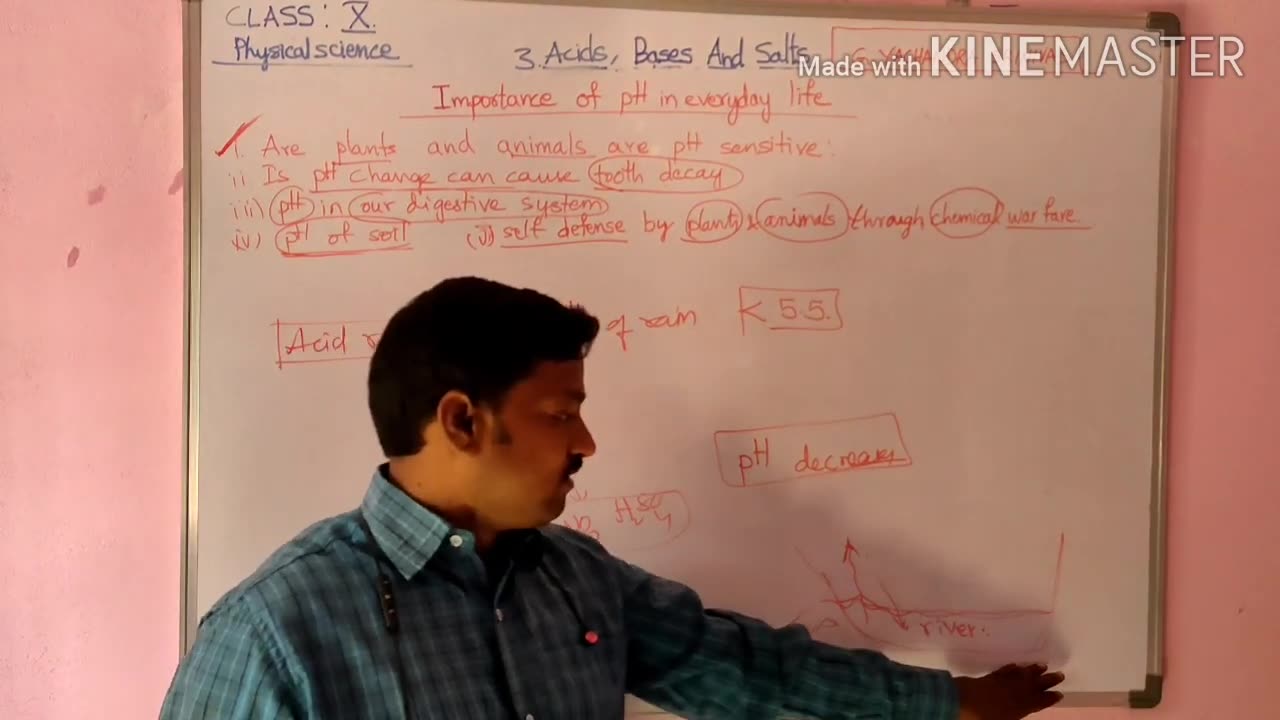 CLASS: X.
Physical science
3. Acids, Bases And Salts
Made with KINEMASTER
Importance of pH in everyday life
i. Are plants and animals are pH sensitive:
ii Is pH change can cause tooth decay
iii) pH in our digestive system
iv) pH of soil (v) self defense by plants & animals through chemical war fare.
Acid of rain < 5.5.
pH decreases
H2SO4
river.